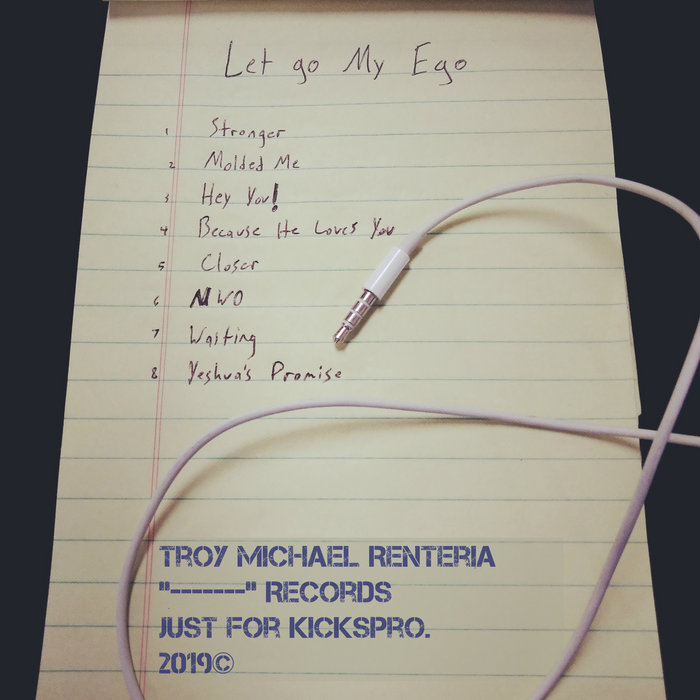 Let go My Ego
1 Stronger
2 Molded Me
3 Hey You!
4 Because He Loves You
5 Closer
6 NWO
7 Waiting
8 Yeshua's Promise
TROY MICHAEL RENTERIA
"-------" RECORDS
JUST FOR KICKSPRO.
2019©